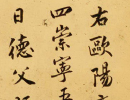 右歐陽
四崇寧五
日德父